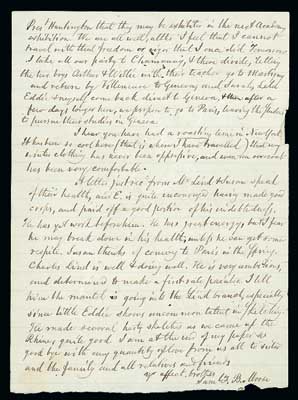 Pres' Huntington that they may be exhibited in the next Academy
exhibition. We are all well, altho I feel that I cannot
travel with that freedom or vigor that I once did. Tomorrow
I take all our party to Chamouny, & there divide, letting
the two boys Arthur & Willie with their teacher go to Martigny
and return by Villeneuve to Geneva, and Sarah, Leila
Eddie & myself come back direct to Geneva, & then after a
few days longer here, we propose to go to Paris, leaving the
to pursue their studies in Geneva.
I hear you have had a roasting time in New York.
It has been so cool here (that is where I have travelled) that my
winter clothing has never been oppressive, and even an overcoat
has been very comfortable.
A letter just recd from Mr Lind & Susan speak
of their health, and E. is quite encouraged having made good
crops, and paid off a good portion of his indebtedness.
He has yet work before him. He has great energy, but I fear
he may break down in his health, unless he can get some
respite. Susan thinks of coming to Paris in the Spring.
Charles Lind is well & doing well. He is very ambitious,
and determined to make a first rate painter. I tell
him the mantle is going into the Lind branch, especially
since little Eddie shows uncommon talent in sketching.
He made several hasty sketches as we came up the
Rhine, quite good. I am at the end of my paper so
good bye with any quantity of love from us all to sister
and the family and all relatives and friends
yr affect. brother
Saml. F. B. Morse